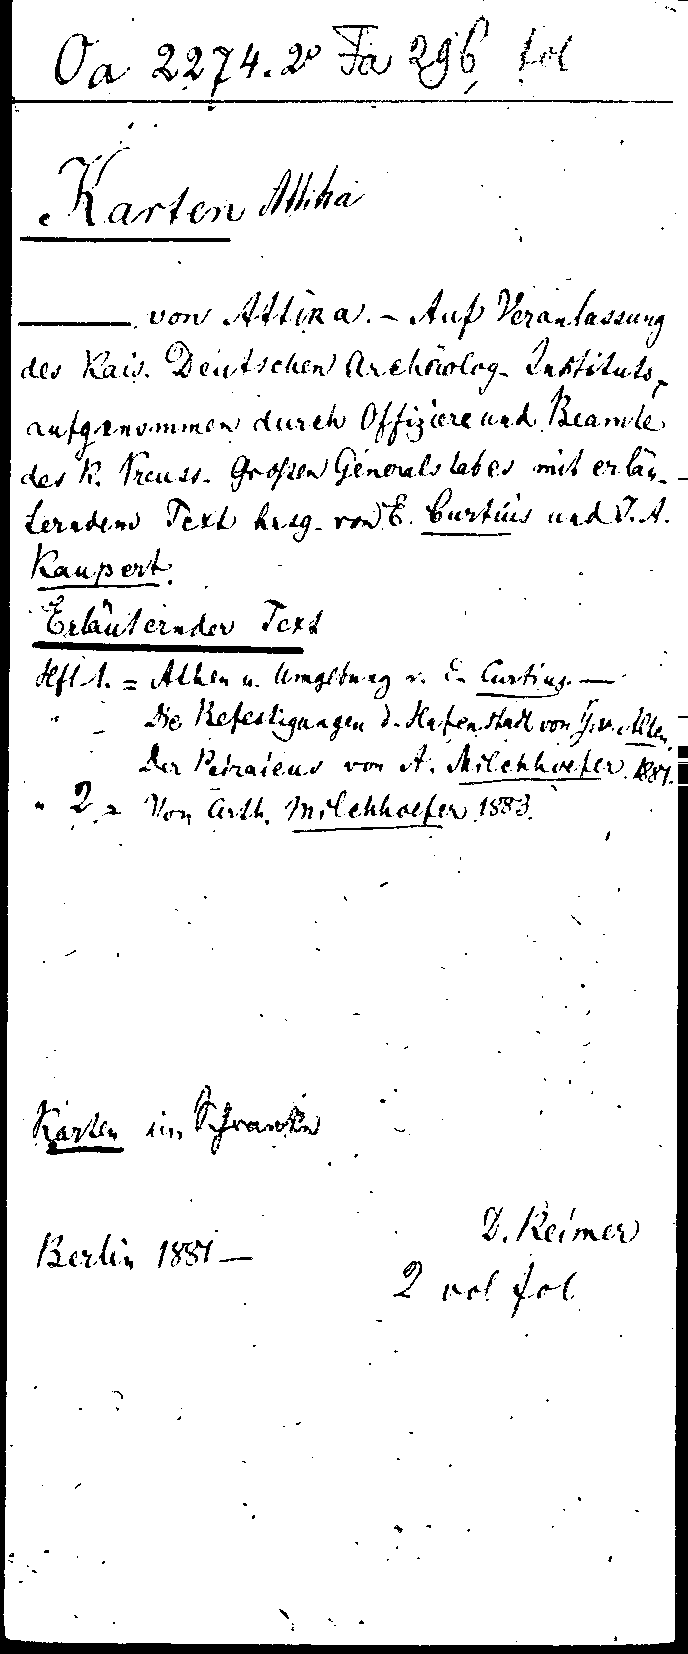 Oa 2274.2° Fa 296 fol
Karten Attika
—— von Attika. – Auf Veranlassung
des Kais. Deutschen Archäolog. Instituts,
aufgenommen durch Offiziere und Beamte
des K. Preuss. Großen Generalstabes mit erläu-
terndem Text hrsg. von E. Curtius und J. A.
Kaupert.
Erläuternder Text
Hft 1. = Athen u. Umgebung v. E. Curtius. —
" – Die Befestigungen d. Hafenstadt von G. v. Alten.
Der Peiraieus von A. Milchhoefer. 1881.
" 2 = Von Arth. Milchhoefer 1883.
Karten im Schranke
D. Reimer
Berlin 1881 —
2 vol fol